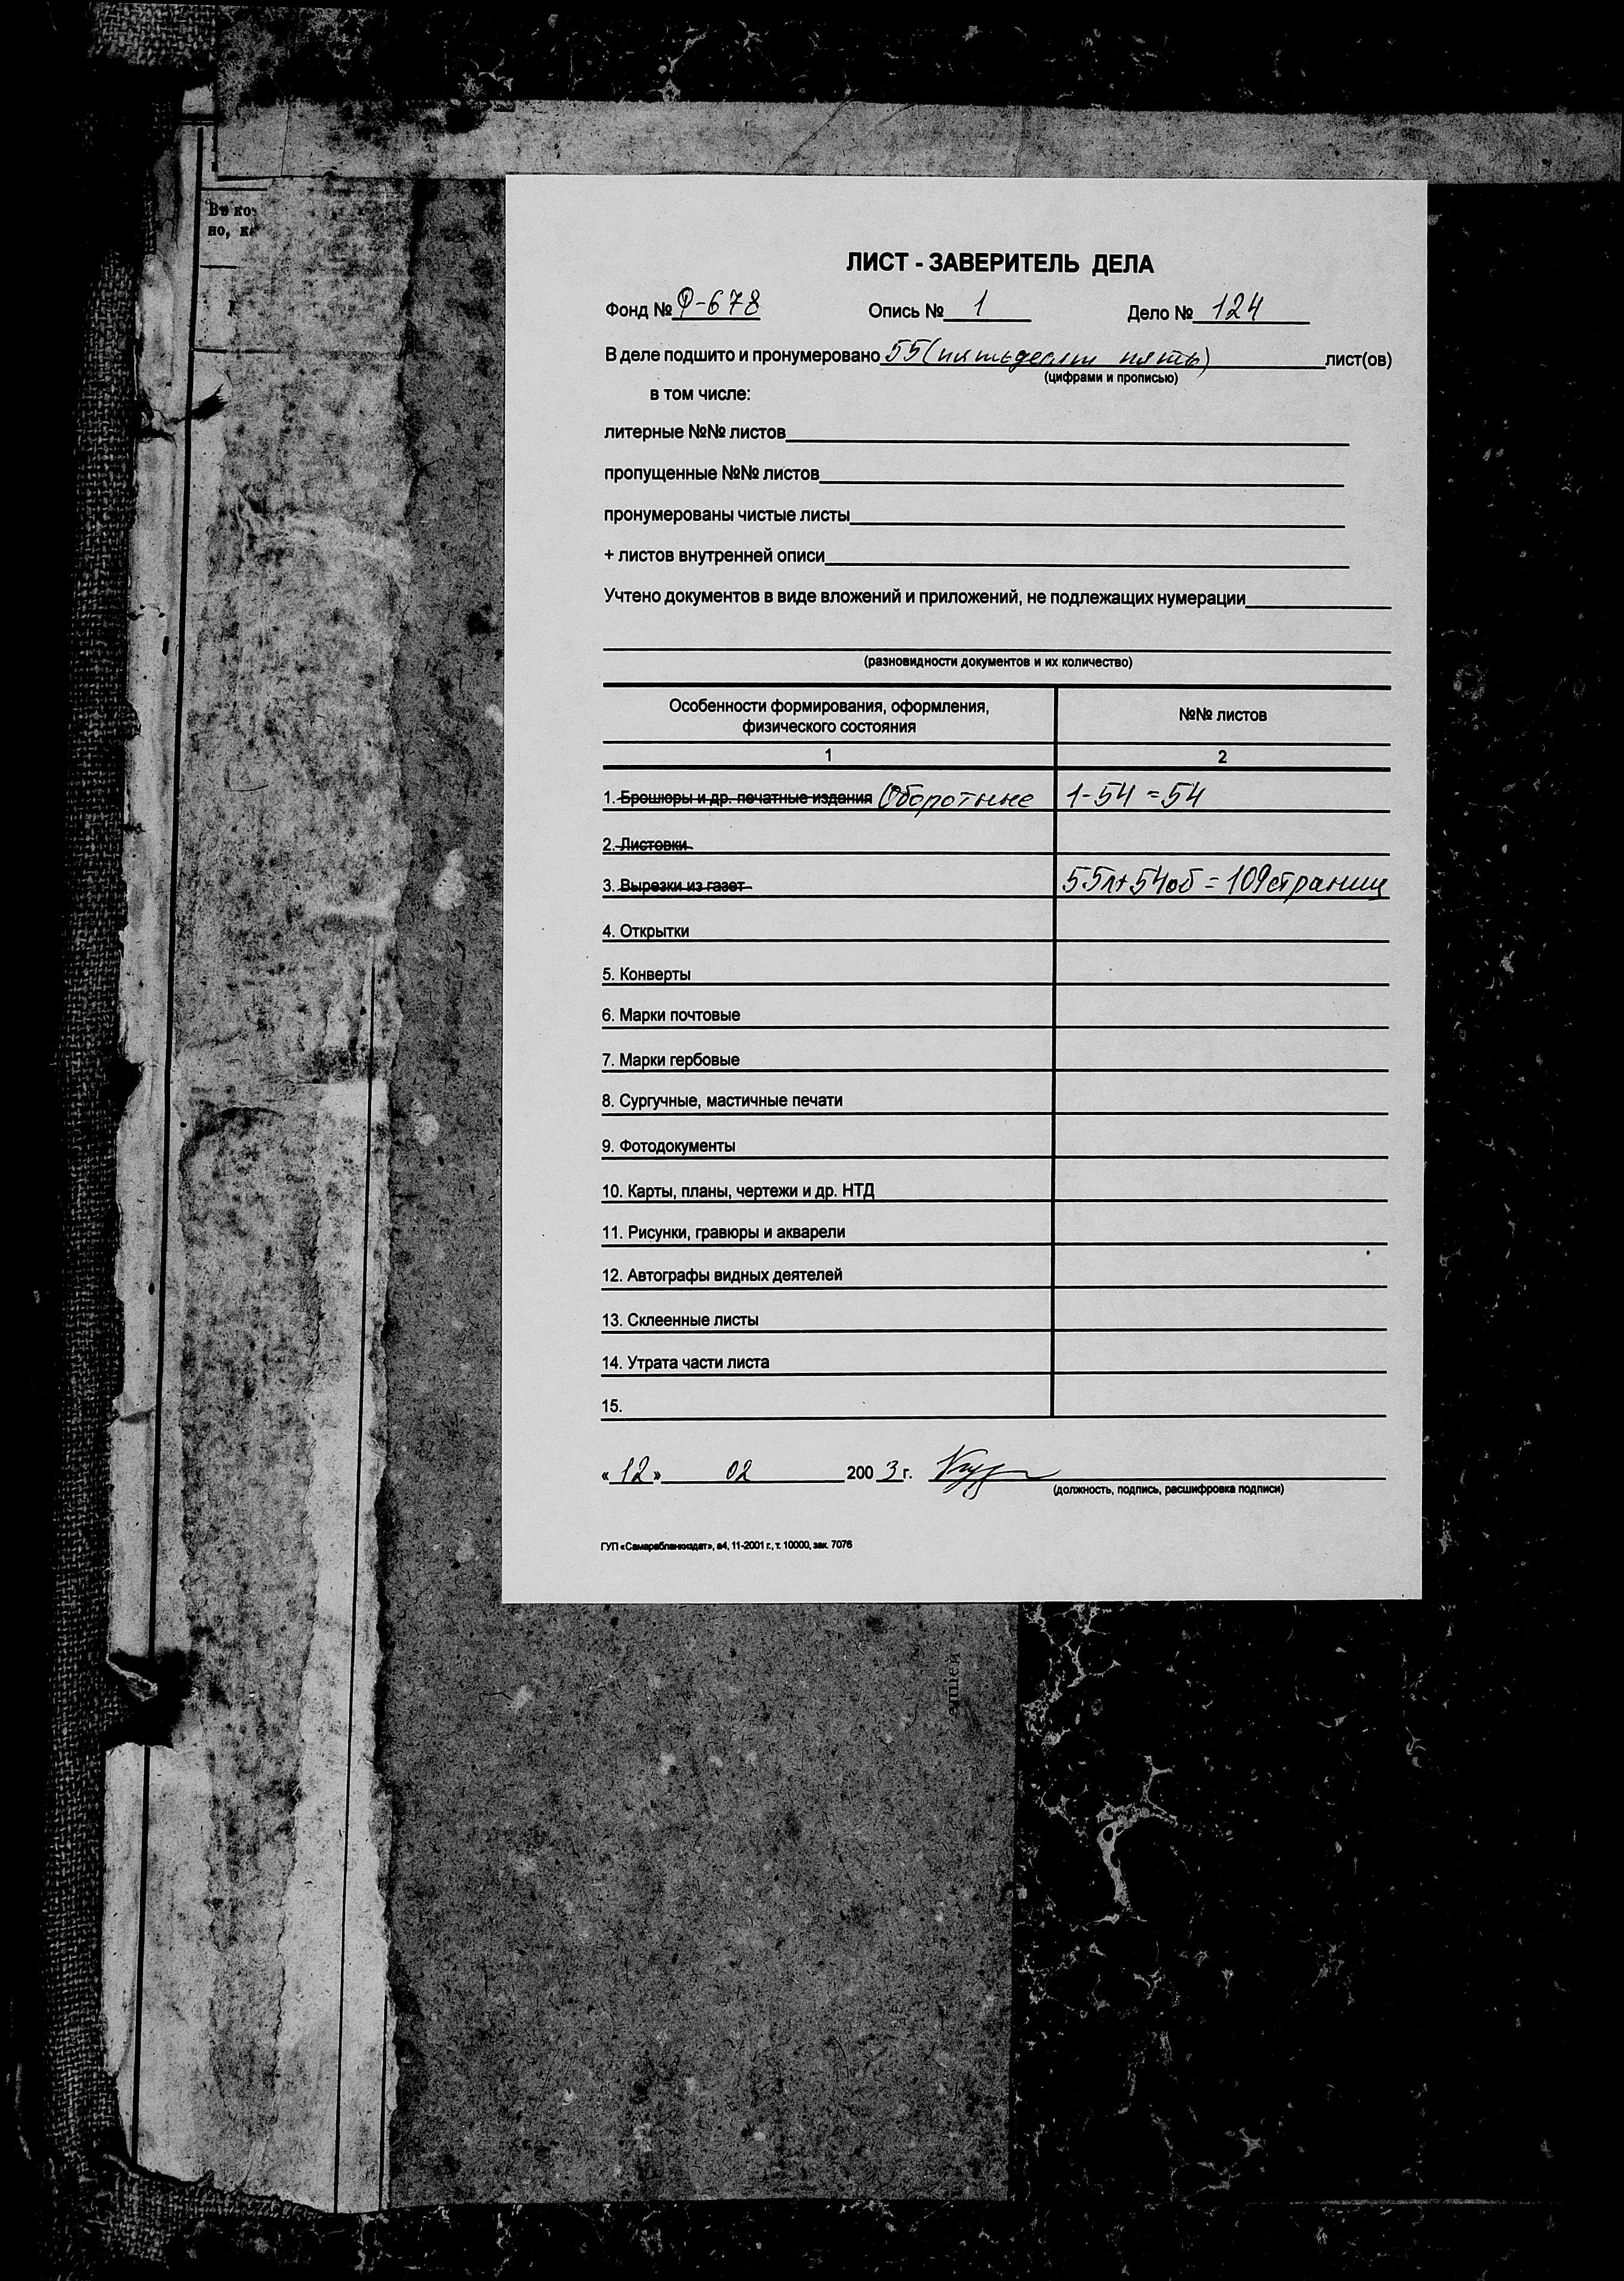 Въ ко
но, к
ЛИСТ - ЗАВЕРИТЕЛЬ ДЕЛА
Фонд № Ф-678 Опись № 1 Дело № 124
В деле подшито и пронумеровано 55 (пятьдесят пять) лист(ов)
(цифрами и прописью)
в том числе:
литерные №№ листов
пропущенные №№ листов
пронумерованы чистые листы
+ листов внутренней описи
Учтено документов в виде вложений и приложений, не подлежащих нумерации
(разновидности документов и их количество)
Особенности формирования, оформления, №№ листов
физического состояния
1 2
1. Брошюры и др. печатные издания Оборотные 1-54 = 54
2. Листовки
3. Вырезки из газет 55л+54об = 109страниц
4. Открытки
5. Конверты
6. Марки почтовые
7. Марки гербовые
8. Сургучные, мастичные печати
9. Фотодокументы
10. Карты, планы, чертежи и др. НТД
11. Рисунки, гравюры и акварели
12. Автографы видных деятелей
13. Склеенные листы
14. Утрата части листа
15.
« 12 » 02 200 3 г.
(должность, подпись, расшифровка подписи)
ГУП «Самарабланкиздат», а4, 11-2001 г., т. 10000, зак. 7076